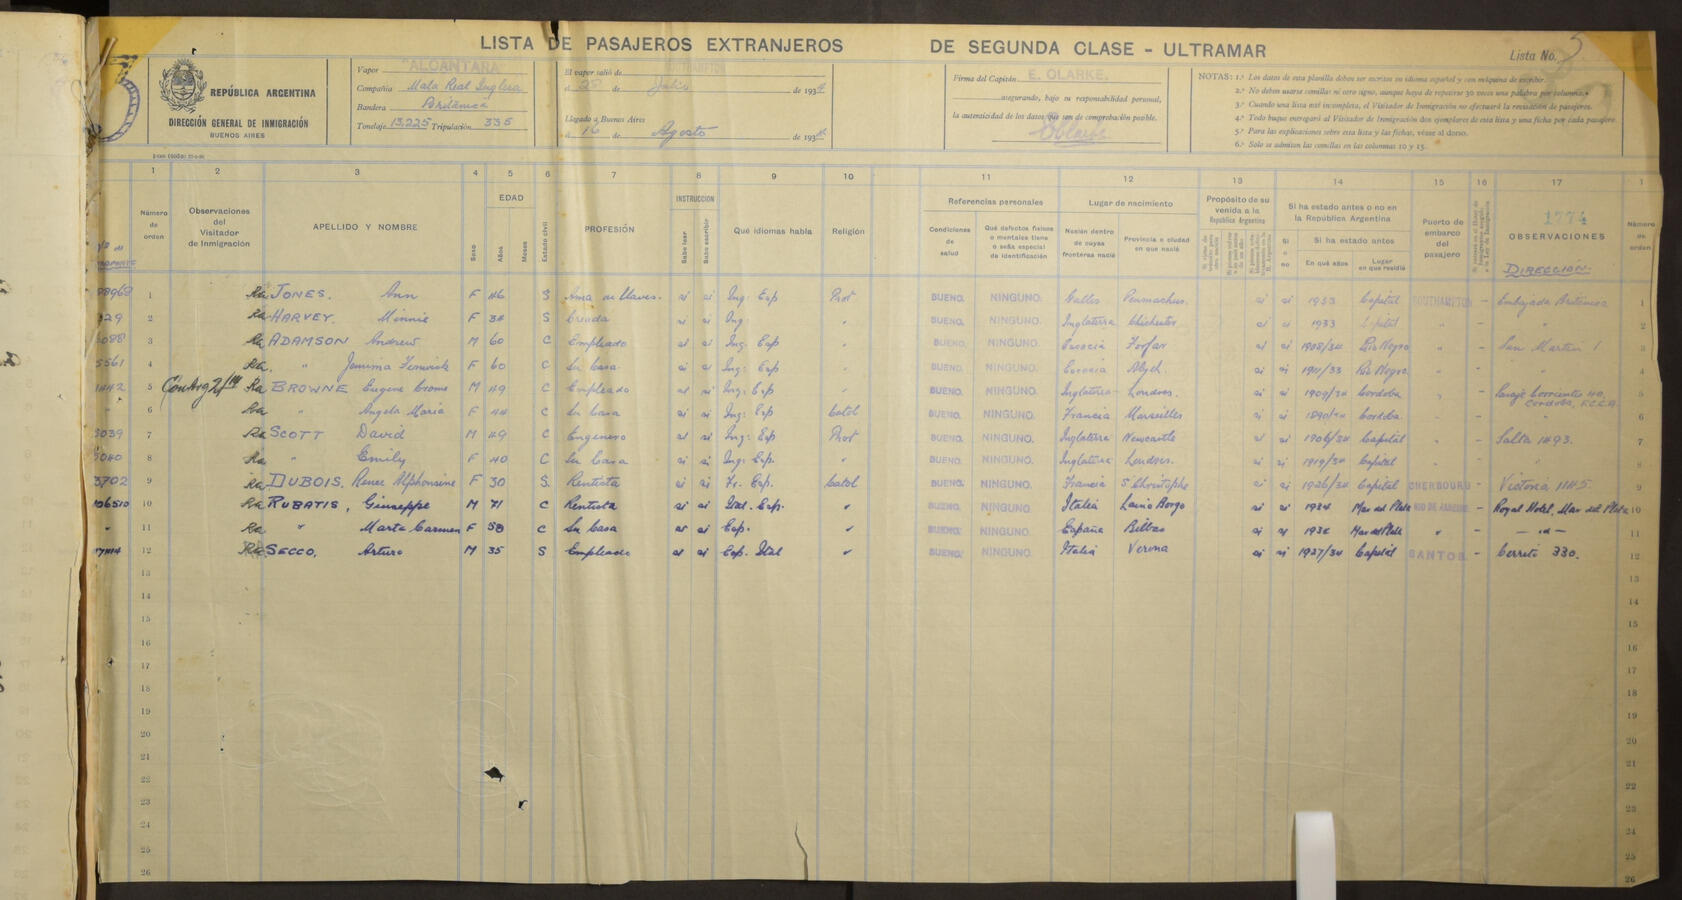 LISTA DE PASAJEROS EXTRANJEROS DE SEGUNDA CLASE - ULTRAMAR
Lista No. 5
REPÚBLICA ARGENTINA
DIRECCIÓN GENERAL DE INMIGRACIÓN
BUENOS AIRES
Vapor "ALCANTARA"
Compañia Mala Real Inglesa
Bandera Britanica
Tonelaje 13,225 Tripulación 335
El vapor salió de SOUTHAMPTON
el 28 de Julio de 1934
Llegado a Buenos Aires
el 16 de Agosto de 1934
Firma del Capitán E. CLARKE.
asegurando, bajo su responsabilidad personal,
la autenticidad de los datos que son de comprobación posible.
EClarke
NOTAS: 1.ª Los datos de esta planilla deben ser escritos en idioma español y con máquina de escribir.
2.ª No deben usarse comillas ni otro signo, aunque haya de repetirse 30 veces una palabra por columna.
3.ª Cuando una lista esté incompleta, el Visitador de Inmigración no efectuará la revisación de pasajeros.
4.ª Todo buque entregará al Visitador de Inmigración dos ejemplares de esta lista y una ficha por cada pasajero.
5.ª Para las explicaciones sobre esta lista y las fichas, véase al dorso.
6.ª Solo se admiten las comillas en las columnas 10 y 15.
1 2 3 4 5 6 7 8 9 10 11 12 13 14 15 16 17 1
Número de orden
Observaciones del Visitador de Inmigración
APELLIDO Y NOMBRE
Sexo
EDAD
Años
Meses
Estado civil
PROFESIÓN
INSTRUCCION
Sabe leer
Sabe escribir
Qué idiomas habla
Religión
Referencias personales
Condiciones de salud
Qué defectos físicos o mentales tiene o seña especial de identificación
Lugar de nacimiento
Nación dentro de cuyas fronteras nació
Provincia o ciudad en que nació
Propósito de su venida a la República Argentina
Si ha estado antes o no en la República Argentina
Si o no
Si ha estado antes
En qué años
Lugar en que residió
Puerto de embarco del pasajero
1774
OBSERVACIONES
DIRECCIÓN
Número de orden
1 Ra JONES. Ann F 46 S Ama de llaves. si si Ing: Esp Prot BUENO. NINGUNO. Galles Penmachno. si si 1933 Capital SOUTHAMPTON - Embajada Britanica 1
2 Ra HARVEY. Minnie F 34 S Criada si si Ing: " BUENO. NINGUNO. Inglaterra Chichester si si 1933 Capital " - " 2
3 Ra ADAMSON Andrew M 60 C Empleado si si Ing: Esp " BUENO. NINGUNO. Escocia Forfar si si 1908/34 Rio Negro " - San Martin 1 3
4 Ra " Jemima Fenwick F 60 C Su Casa si si Ing: Esp " BUENO. NINGUNO. Escocia si si 1911/33 Rio Negro " - " 4
5 Ra BROWNE Eugene Crome M 49 C Empleado si si Ing: Esp " BUENO. NINGUNO. Inglaterra Londres. si si 1909/34 Cordoba " - Pasaje Corrientes 40, Cordoba, F.C.C.A. 5
6 Ra " Angela Maria F 44 C Su Casa si si Ing: Esp Catol BUENO. NINGUNO. Francia Marseilles si si 1890/34 Cordoba " - " 6
7 Ra SCOTT David M 49 C Engenero si si Ing: Esp Prot BUENO. NINGUNO. Inglaterra Newcastle si si 1906/34 Capital " - Salta 1493. 7
8 Ra " Emily F 40 C Su Casa si si Ing: Esp. " BUENO. NINGUNO. Inglaterra Londres. si si 1919/34 Capital " - " 8
9 Ra DUBOIS. Renee Alphonsine F 30 S. Rentista si si Fr. Esp. Catol BUENO. NINGUNO. Francia S. Christophe si si 1926/34 Capital CHERBOURG - Victoria 1145. 9
106510 10 Ra RUBATIS, Giuseppe M 71 C Rentista si si Ital. Esp. " BUENO. NINGUNO. Italia Lanzo Borgo si si 1934 Mar del Plata RIO DE JANEIRO - Royal Hotel, Mar del Plata 10
" 11 Ra " Marta Carmen F 58 C Su Casa si si Esp. " BUENO. NINGUNO. España Bilbao si si 1934 Mar del Plata " - -id- 11
12 Ra SECCO, Arturo M 35 S Empleado si si Esp. Ital " BUENO. NINGUNO. Italia Verona si si 1927/34 Capital SANTOS - Cerrito 330. 12
13 13
14 14
15 15
16 16
17 17
18 18
19 19
20 20
21 21
22 22
23 23
24 24
25 25
26 26